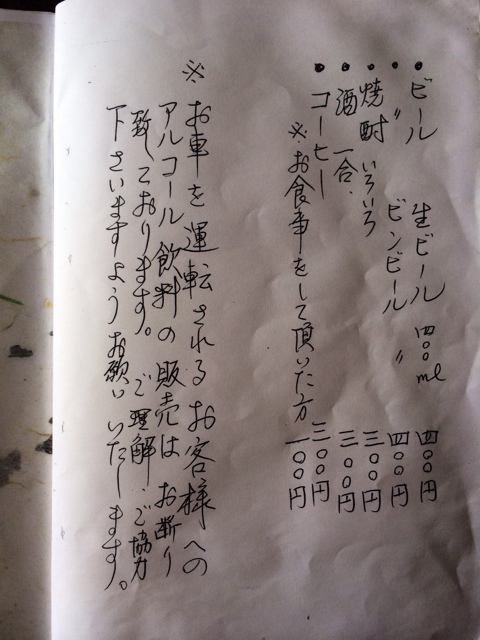 ・ビール 生ビール 四〇〇ml 四〇〇円
・〃 ビンビール 〃 四〇〇円
・焼酎 いろいろ 三〇〇円
・酒 一合. 三〇〇円
・コーヒー 三〇〇円
※お食事をして頂いた方 一〇〇円
※ お車を運転されるお客様への
アルコール飲料の販売は お断り
致しております。ご理解.ご協力
下さいますようお願いいたします。